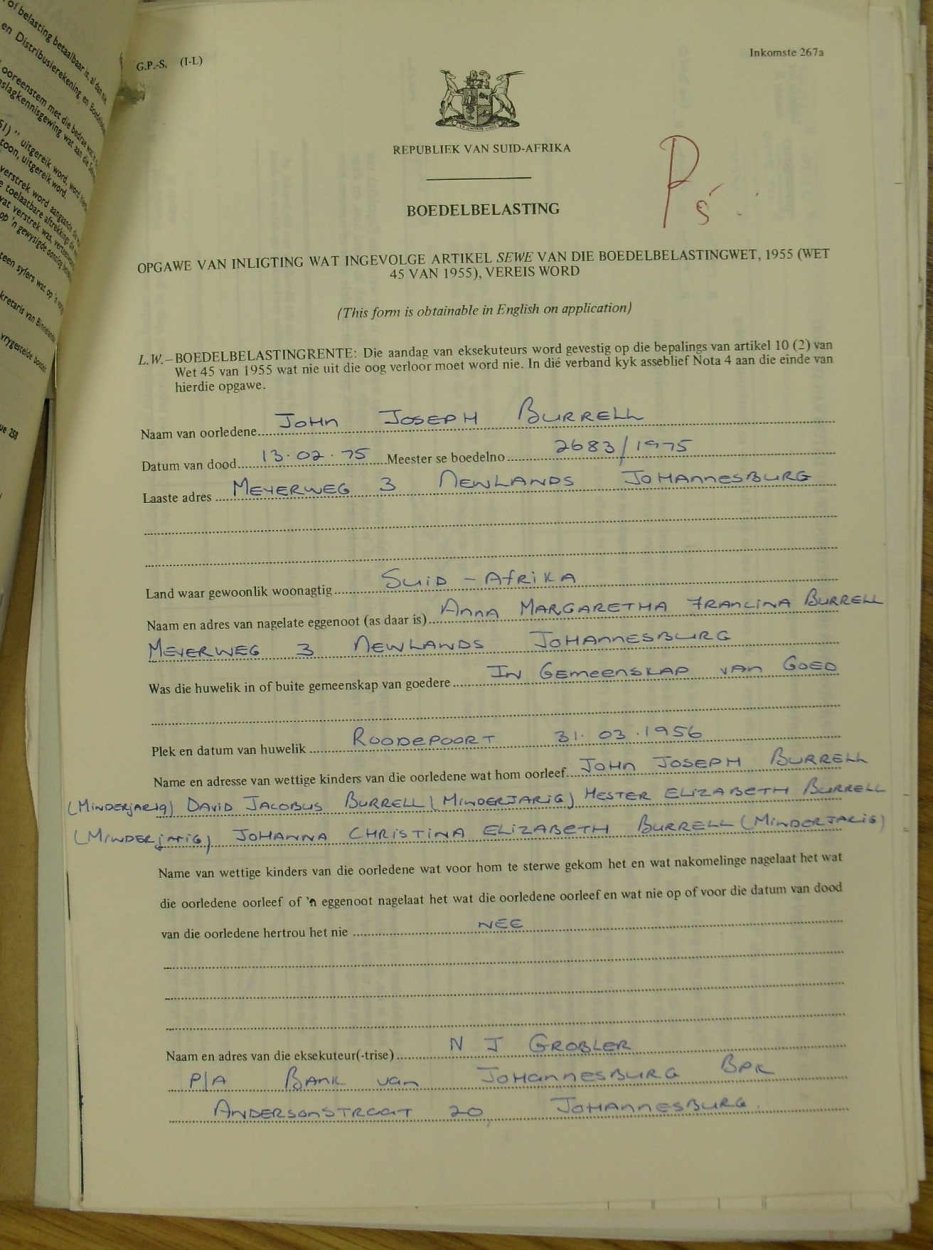 of belasting betaalbaar is, al dan nie
en Distribusierekening en Boedel
ooreenstem met die bedrae wat
slagkennisgewing wat aan die
uitgereik word, word
toon, uitgereik word.
verstrek word aangaande
toelaatbare aftrekkings
wat verstrek was, vervang
op 'n gewysigde
teen syfers wat op
kretaris van Binnelandse
vrygestelde boedel
G.P.-S. (I-L)
Inkomste 267a
REPUBLIEK VAN SUID-AFRIKA
BOEDELBELASTING
OPGAWE VAN INLIGTING WAT INGEVOLGE ARTIKEL SEWE VAN DIE BOEDELBELASTINGWET, 1955 (WET
45 VAN 1955), VEREIS WORD
(This form is obtainable in English on application)
L.W.–BOEDELBELASTINGRENTE: Die aandag van eksekuteurs word gevestig op die bepalings van artikel 10 (2) van
Wet 45 van 1955 wat nie uit die oog verloor moet word nie. In dié verband kyk asseblief Nota 4 aan die einde van
hierdie opgawe.
Naam van oorledene JOHN JOSEPH BURRELL
Datum van dood 13·02·75 Meester se boedelno 2683/1975
Laaste adres MEYERWEG 3 NEWLANDS JOHANNESBURG
Land waar gewoonlik woonagtig SUID-AFRIKA
Naam en adres van nagelate eggenoot (as daar is) ANNA MARGARETHA FRANCINA BURRELL
MEYERWEG 3 NEWLANDS JOHANNESBURG
Was die huwelik in of buite gemeenskap van goedere IN GEMEENSKAP VAN GOED
Plek en datum van huwelik ROODEPOORT 31·03·1956
Name en adresse van wettige kinders van die oorledene wat hom oorleef JOHN JOSEPH BURRELL
(MINDERJARIG) DAVID JACOBUS BURRELL (MINDERJARIG) HESTER ELIZABETH BURRELL
(MINDERJARIG) JOHANNA CHRISTINA ELIZABETH BURRELL (MINDERJARIG)
Name van wettige kinders van die oorledene wat voor hom te sterwe gekom het en wat nakomelinge nagelaat het wat
die oorledene oorleef of 'n eggenoot nagelaat het wat die oorledene oorleef en wat nie op of voor die datum van dood
van die oorledene hertrou het nie NEE
Naam en adres van die eksekuteur(-trise) N J GROBLER
P/A BANK VAN JOHANNESBURG BPK
ANDERSONSTRAAT 20 JOHANNESBURG.